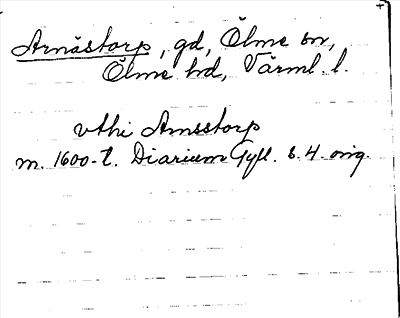 Arnästorp, gd, Ölme sn,
Ölme hd, Värml. l.
uthi Arnsstorp
m. 1600-t. Diarium Gyll. s. 4. orig.